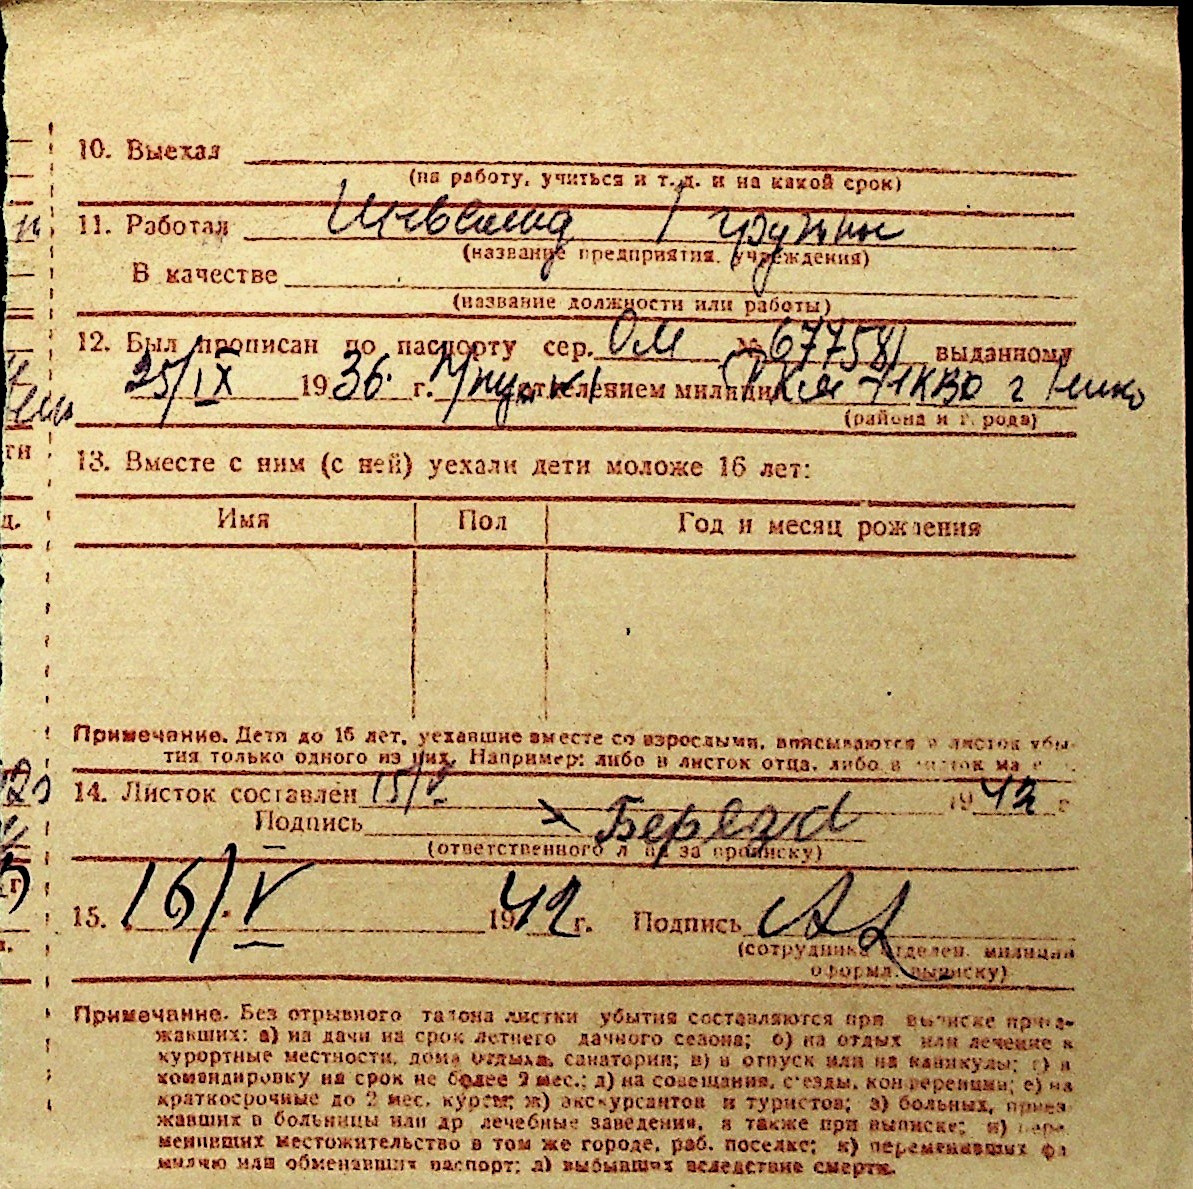 10. Выехал
(на работу, учиться и т. д. и на какой срок)
11. Работал Инвалид I группы
(название предприятия, учреждения)
В качестве
(название должности или работы)
12. Был прописан по паспорту сер. ОМ № 677581 выданному
25/IX 1936. г. отделением милиции РКМ НКВД г
(района и города)
13. Вместе с ним (с ней) уехали дети моложе 16 лет:
Имя Пол Год и месяц рождения
Примечание. Дети до 16 лет, уехавшие вместе со взрослыми, вписываются в листок убы-
тия только одного из них. Например: либо в листок отца, либо в листок ма
14. Листок составлен 15/V 1942 г
Подпись Береза
(ответственного лица за прописку)
15. 16/V 1942 г. Подпись
(сотрудника отделен. милиции
оформл. выписку)
Примечание. Без отрывного талона листки убытия составляются при выписке приез-
жавших: а) на дачи на срок летнего дачного сезона; б) на отдых или лечение в
курортные местности, дома отдыха, санатории; в) в отпуск или на каникулы; г) в
командировку на срок не более 2 мес.; д) на совещания, съезды, конференции; е) на
краткосрочные до 2 мес. курсы; ж) экскурсантов и туристов; з) больных, приез-
жавших в больницы или др лечебные заведения, а также при выписке; и) пере-
менивших местожительство в том же городе, раб. поселке; к) переменивших фа
милию или обменявших паспорт; л) выбывших вследствие смерти.